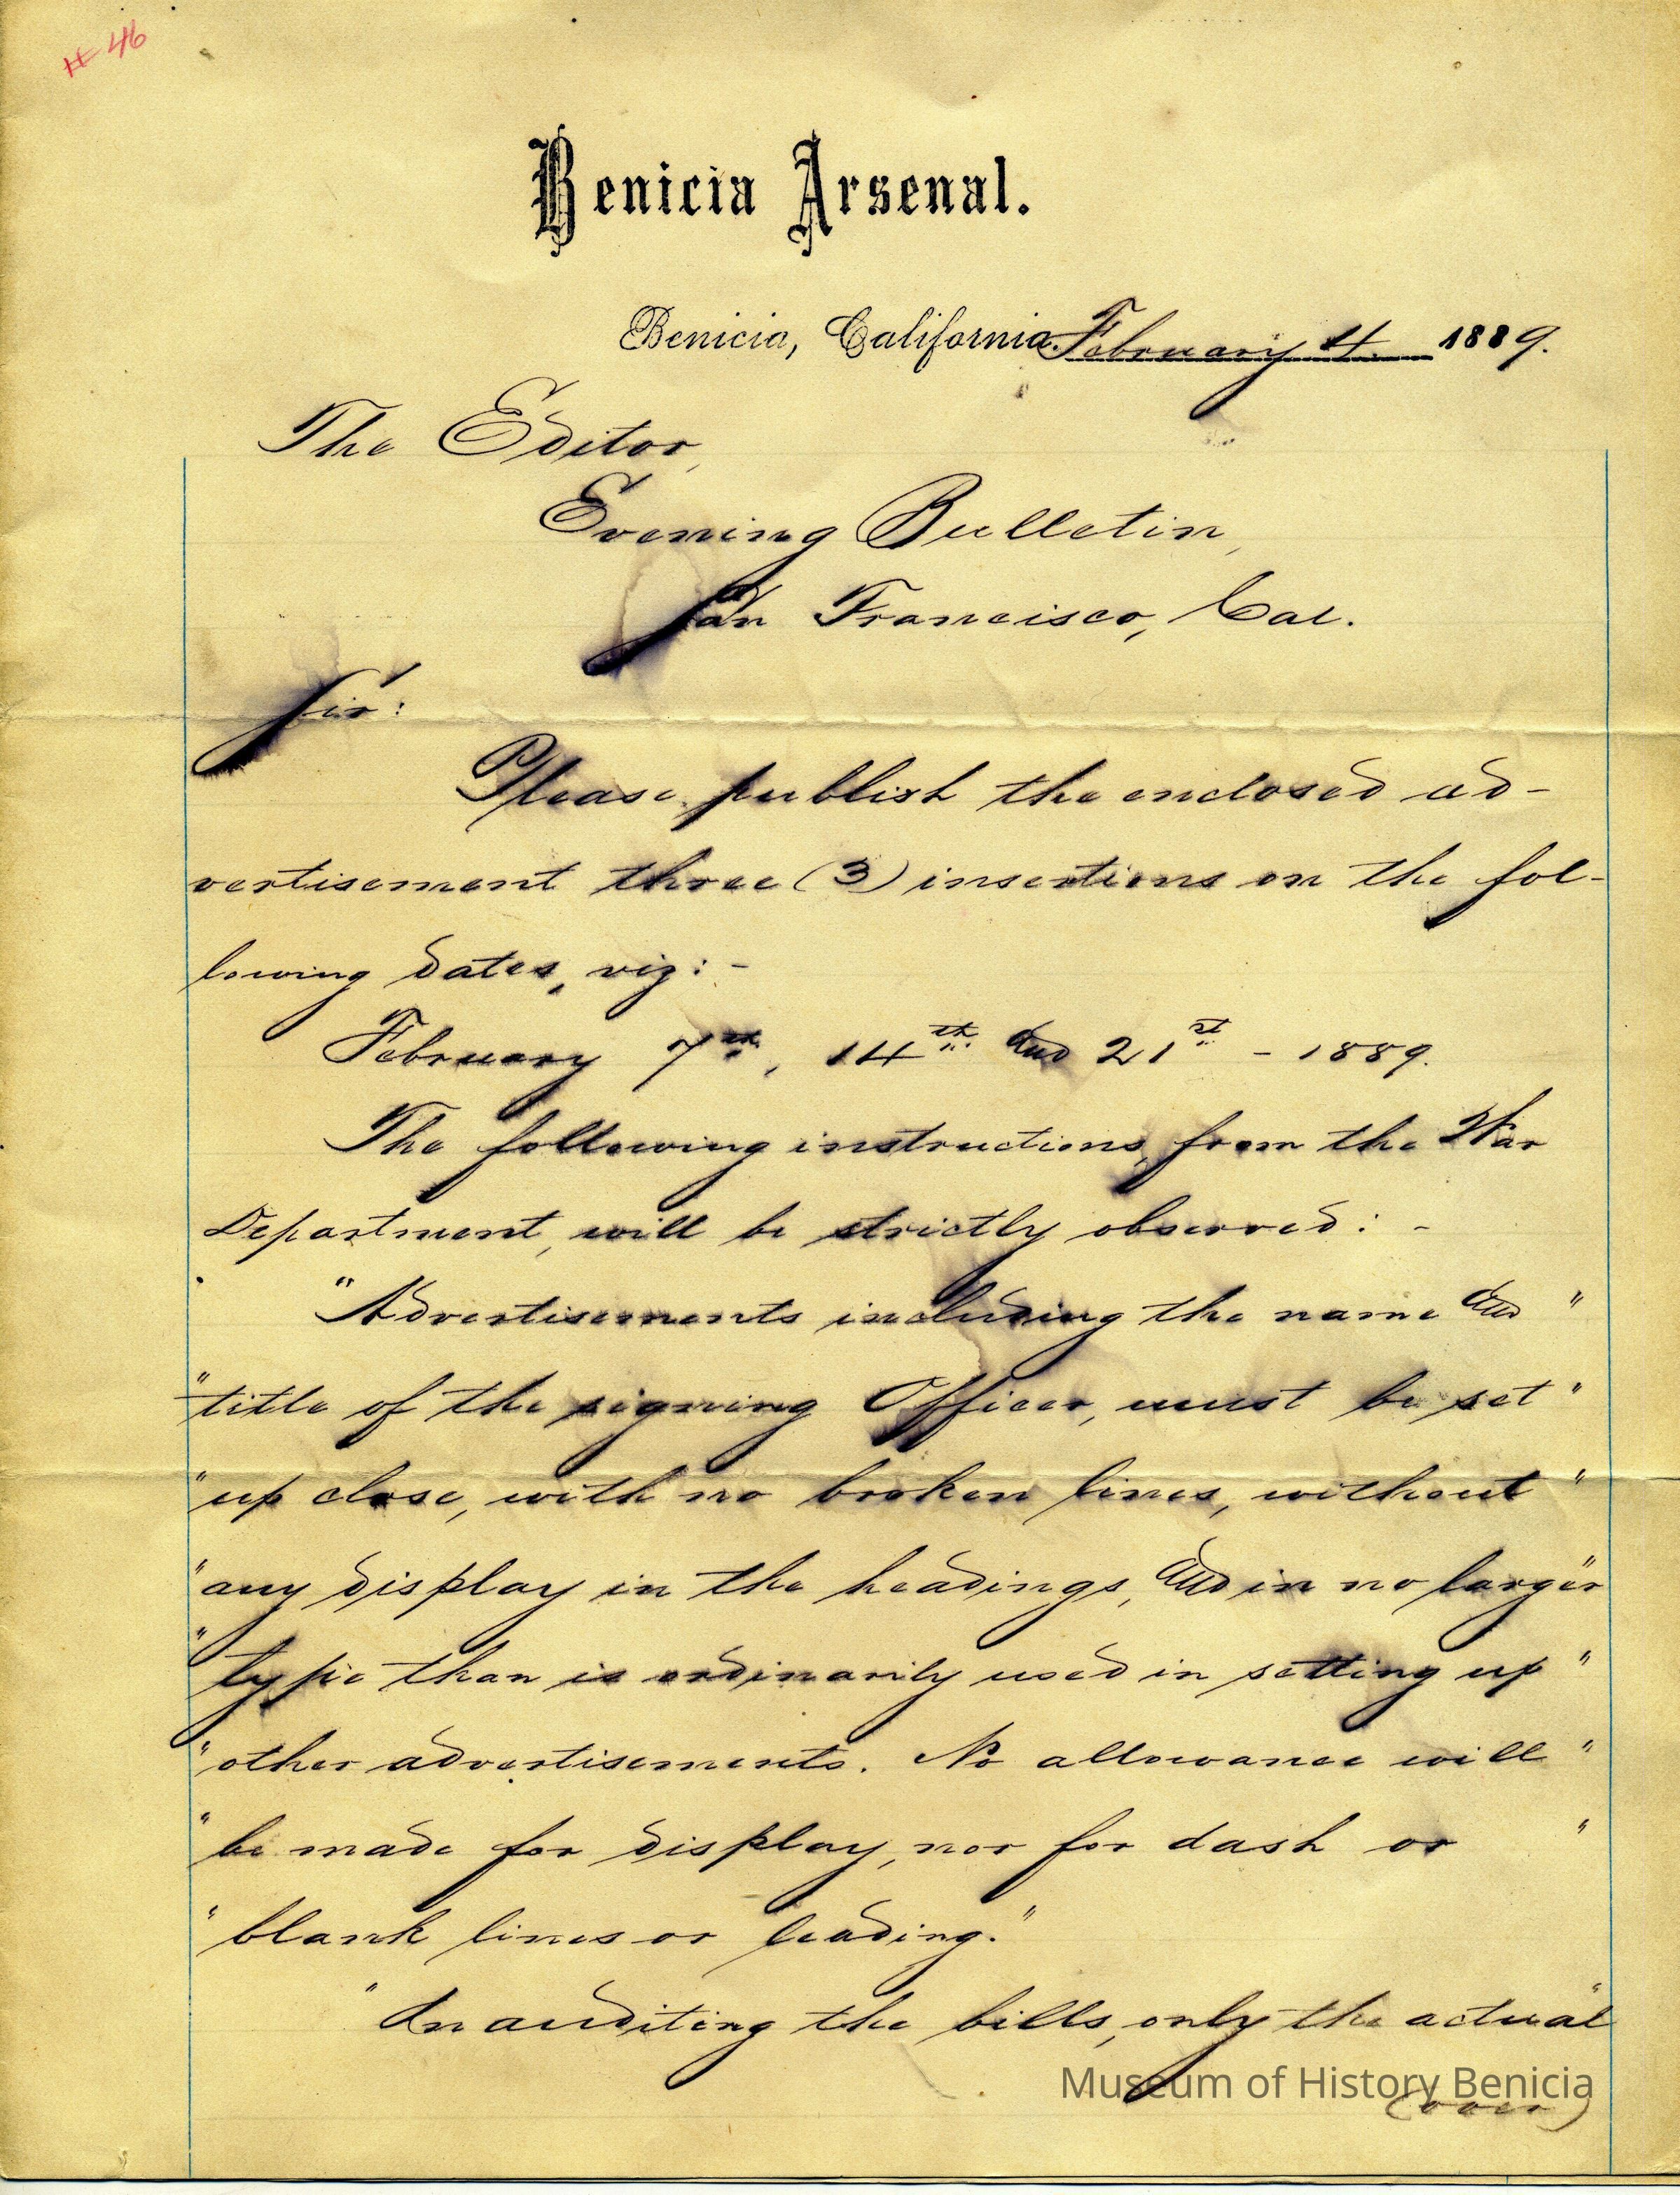 # 46
Benicia Arsenal.
Benicia, California. February 4. 1889.
The Editor,
Evening Bulletin,
San Francisco, Cal.
Sir:
Please publish the enclosed ad-
vertisement three (3) insertions on the fol-
lowing dates, viz: -
February 7th, 14th and 21st - 1889.
The following instructions, from the War
Department, will be strictly observed: -
"Advertisements including the name and "
"title of the signing Officer, must be set "
"up close, with no broken lines, without "
"any display in the headings, and in no larger"
"type than is ordinarily used in setting up "
"other advertisements. No allowance will "
"be made for display, nor for dash or "
"blank lines or leading."
"In auditing the bills, only the actual"
Museum of History Benicia
(over)